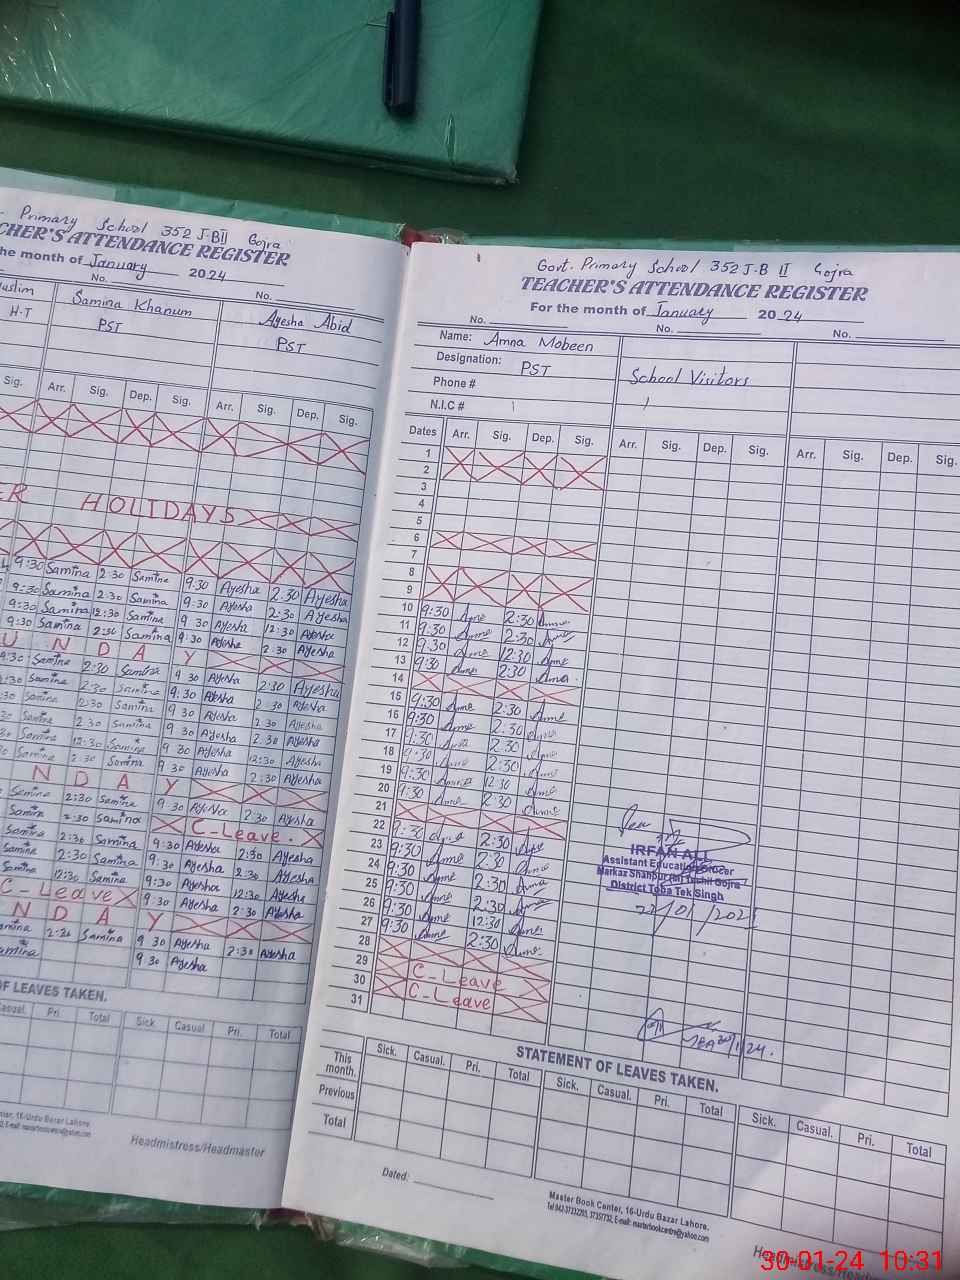 Primary School 352 J-B II Gojra
CHER'S ATTENDANCE REGISTER
the month of January 2024
No. No.
uslim Samina Khanum Ayesha Abid
H-T PST PST
Sig. Arr. Sig. Dep. Sig. Arr. Sig. Dep. Sig.
ER HOLIDAYS
9:30 Samina 2:30 Samina 9:30 Ayesha 2:30 Ayesha
9:30 Samina 2:30 Samina 9:30 Ayesha 2:30 Ayesha
9:30 Samina 12:30 Samina 9 30 Ayesha 12:30 Ayesha
9:30 Samina 2:30 Samina 9:30 Ayesha 2 30 Ayesha
U N D A Y
9:30 Samina 2:30 Samina 9 30 Ayesha 2:30 Ayesha
:30 Samina 2:30 Samina 9:30 Ayesha 2:30 Ayesha
:30 Samina 2:30 Samina 9 30 Ayesha 2:30 Ayesha
30 Samina 2 30 Samina 9 30 Ayesha 2:30 Ayesha
30 Samina 12:30 Samina 9 30 Ayesha 12:30 Ayesha
Samina 2:30 Samina 9 30 Ayesha 2:30 Ayesha
N D A Y
Samina 2:30 Samina 9 30 Ayesha 2:30 Ayesha
Samina 2:30 Samina C-Leave.
Samina 2:30 Samina 9:30 Ayesha 2:30 Ayesha
Samina 2:30 Samina 9:30 Ayesha 2:30 Ayesha
Samina 12:30 Samina 9:30 Ayesha 12:30 Ayesha
C-Leave 9:30 Ayesha 2:30 Ayesha
N D A Y
mina 2:30 Samina 9 30 Ayesha 2:30 Ayesha
amina 9 30 Ayesha
OF LEAVES TAKEN.
Casual. Pri. Total Sick. Casual Pri. Total
Headmistress/Headmaster
Govt. Primary School 352 J.B II Gojra
TEACHER'S ATTENDANCE REGISTER
For the month of January 2024
No. No. No.
Name: Amna Mobeen
Designation: PST School Visitors
Phone #
N.I.C #
Dates Arr. Sig. Dep. Sig. Arr. Sig. Dep. Sig. Arr. Sig. Dep. Sig.
1
2
3
4
5
6
7
8
9
10 9:30 Ame 2:30
11 9:30 Ame 2:30
12 9:30 Ame 12:30 Ame
13 9:30 Ame 2:30 Ame
14
15 9:30 Ame 2:30 Ame
16 9:30 Ame 2:30
17 9:30 2:30 Ame
18 9:30 Ame 2:30 Ame
19 9:30 12:30 Ame
20 9:30 Ame 2:30 Ame
21
22 9:30 2:30
23 9:30 Ame 2:30 Ame
24 9:30 Ame 2:30 Ame
25 9:30 Ame 2:30
26 9:30 Ame 12:30 Ame
27 9:30 Ame 2:30 Ame
28
29 C-Leave
30 C-Leave
31
IRFAN ALI
Assistant Education Officer
Markaz Shahpur Tehil Gojra
District Toba Tek Singh
STATEMENT OF LEAVES TAKEN.
Sick. Casual. Pri. Total Sick. Casual. Pri. Total Sick. Casual. Pri. Total
This month.
Previous
Total
Dated:
Master Book Center, 16-Urdu Bazar Lahore.
30-01-24 10:31